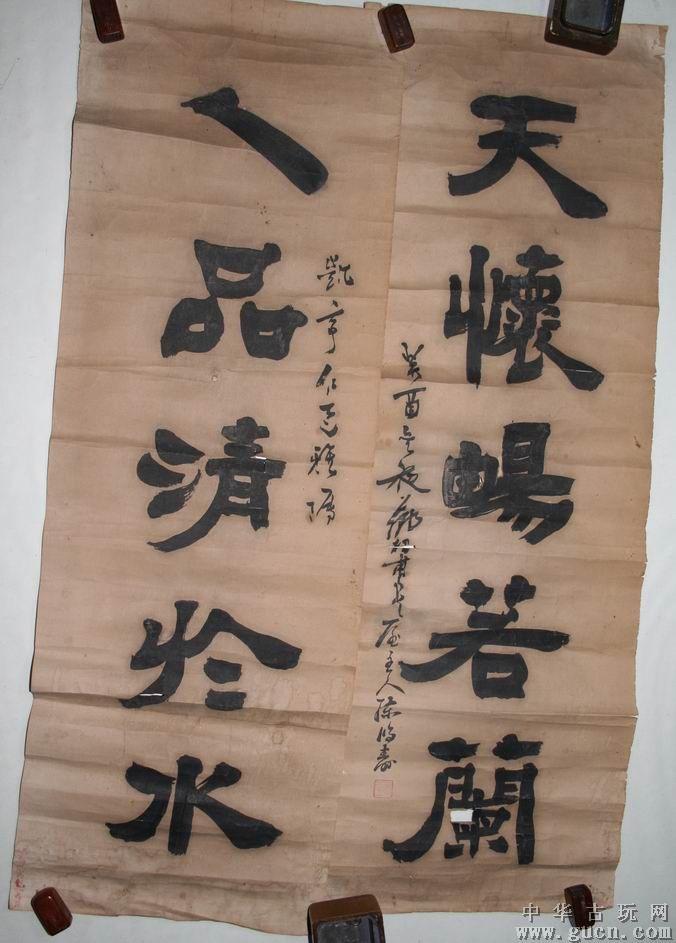 天懷暢若蘭
癸酉夜書屋主人陳鴻壽
凱亭仁兄雅屬
人品清於水
中华古玩网
www.gucn.com